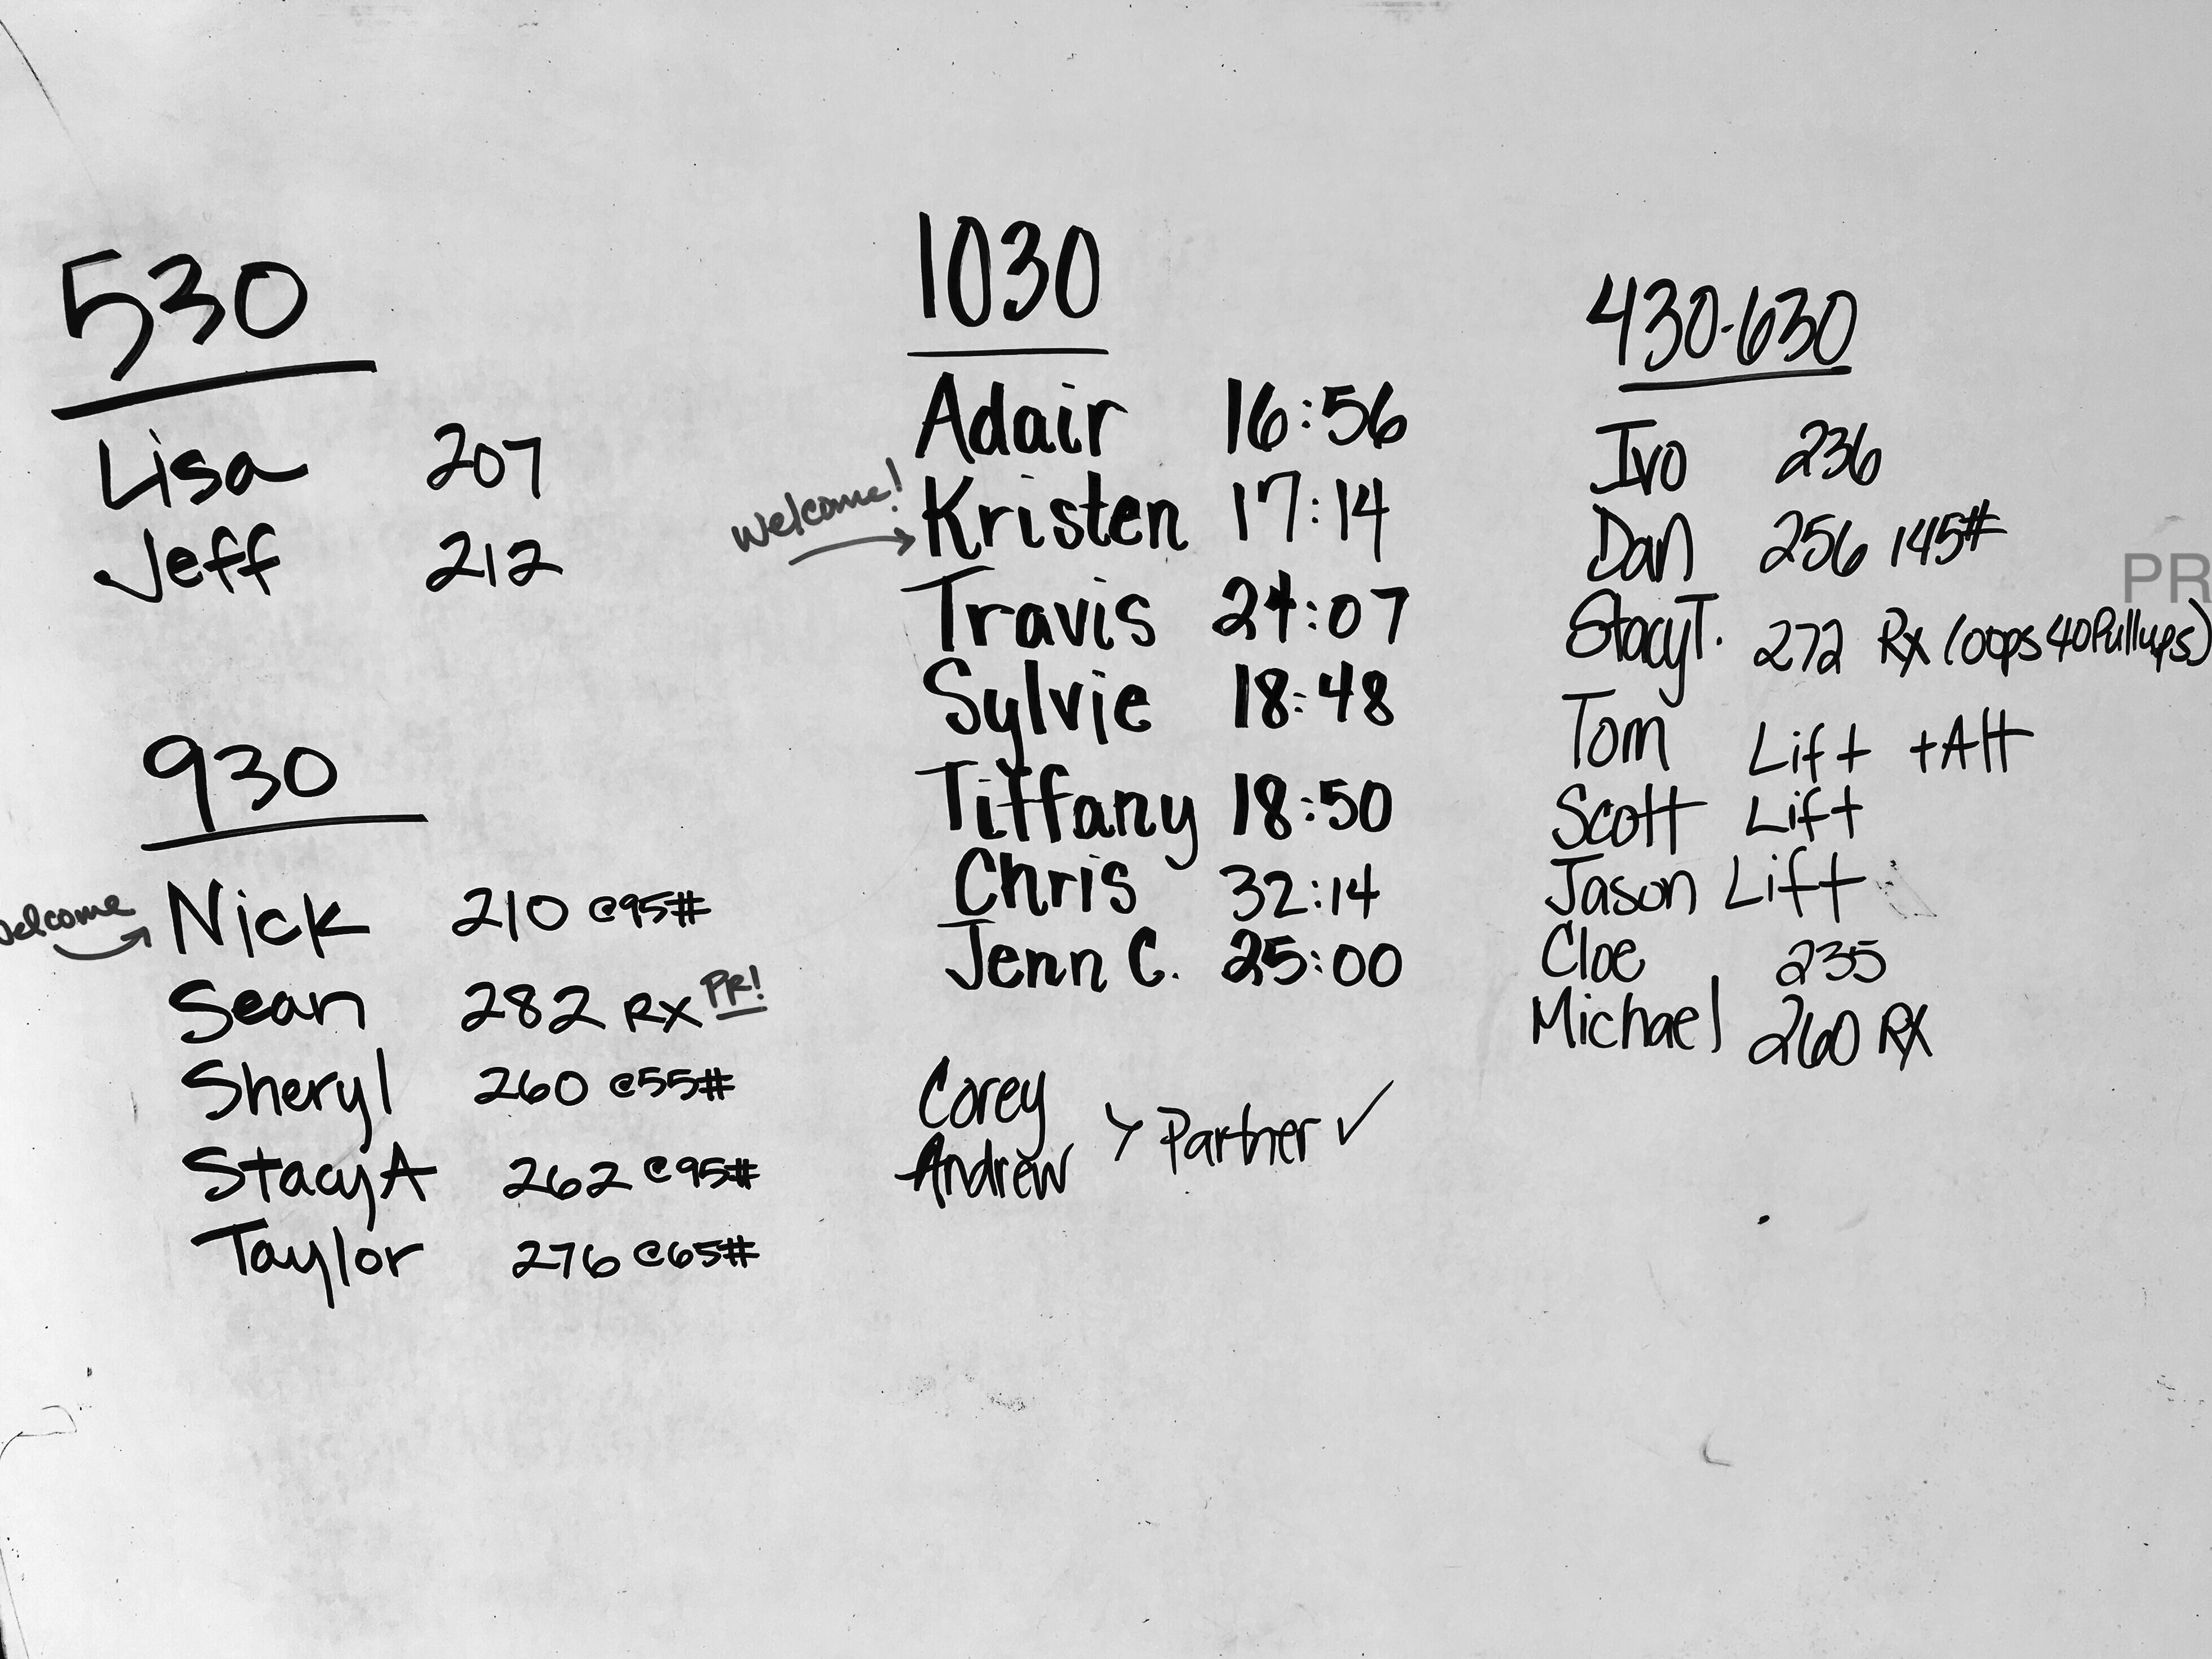 530
Lisa 207
Jeff 212
930
welcome Nick 210 @95#
Sean 282 RX PR!
Sheryl 260 @55#
Stacy A 262 @95#
Taylor 276 @65#
1030
Adair 16:56
welcome! Kristen 17:14
Travis 24:07
Sylvie 18:48
Tiffany 18:50
Chris 32:14
Jenn C. 25:00
Corey
Andrew > Partner ✓
430-630
Ivo 236
Dan 256 145#
PR
Stacy T. 272 Rx (oops 40 Pullups)
Tom Lift + Alt
Scott Lift
Jason Lift
Cloe 235
Michael 260 RX